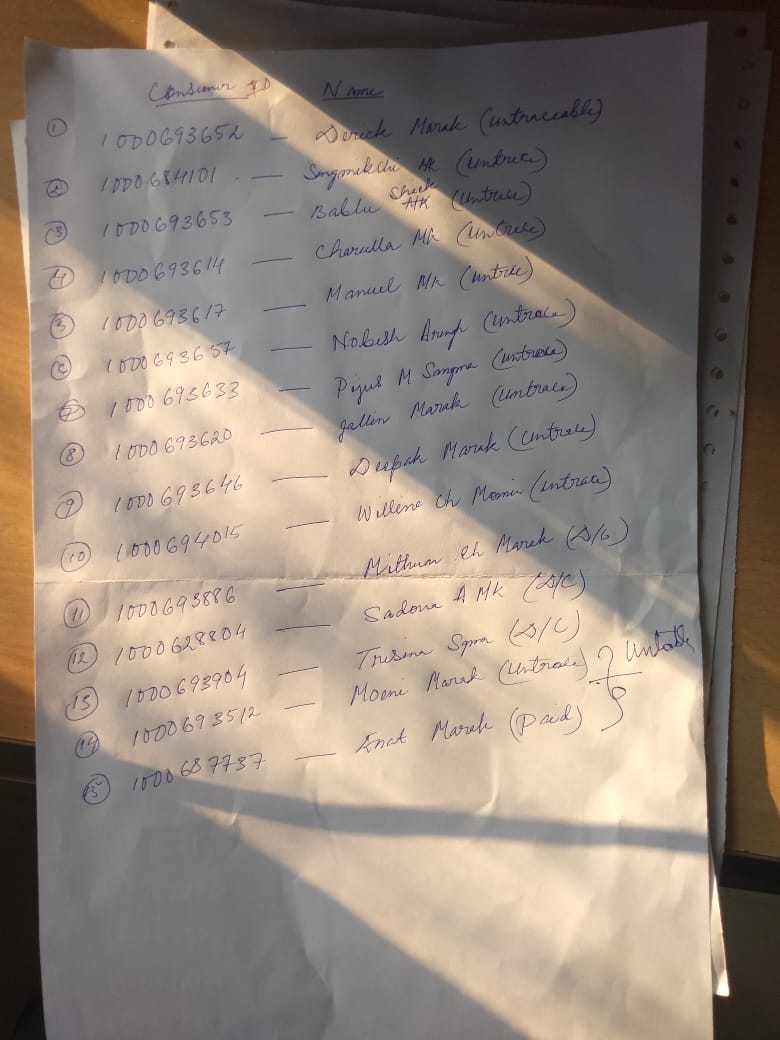 Consumer ID Name
① 1000693652 — Derick Marak (untraceable)
② 1000684101 — Sengmikchi Mk (untrace)
③ 1000693653 — Bablu Sheik (untrace)
④ 1000693614 — Charulla Mk (untrace)
⑤ 1000693617 — Manuel Mk (untrace)
⑥ 1000693657 — Nobesh (untrace)
⑦ 1000693633 — Pijus M Sangma (untrace)
⑧ 1000693620 — Jallin Marak (untrace)
⑨ 1000693646 — Deepak Marak (untrace)
⑩ 1000694015 — Willene Ch Momin (untrace)
⑪ 1000693886 — Mithun Ch Marak (D/C)
⑫ 1000628804 — Sadona A MK (D/C)
⑬ 1000693904 — Tresina Sgma (D/C)
⑭ 1000693512 — Moeni Marak (untrace)
⑮ 1000687737 — Enat Marak (Paid)